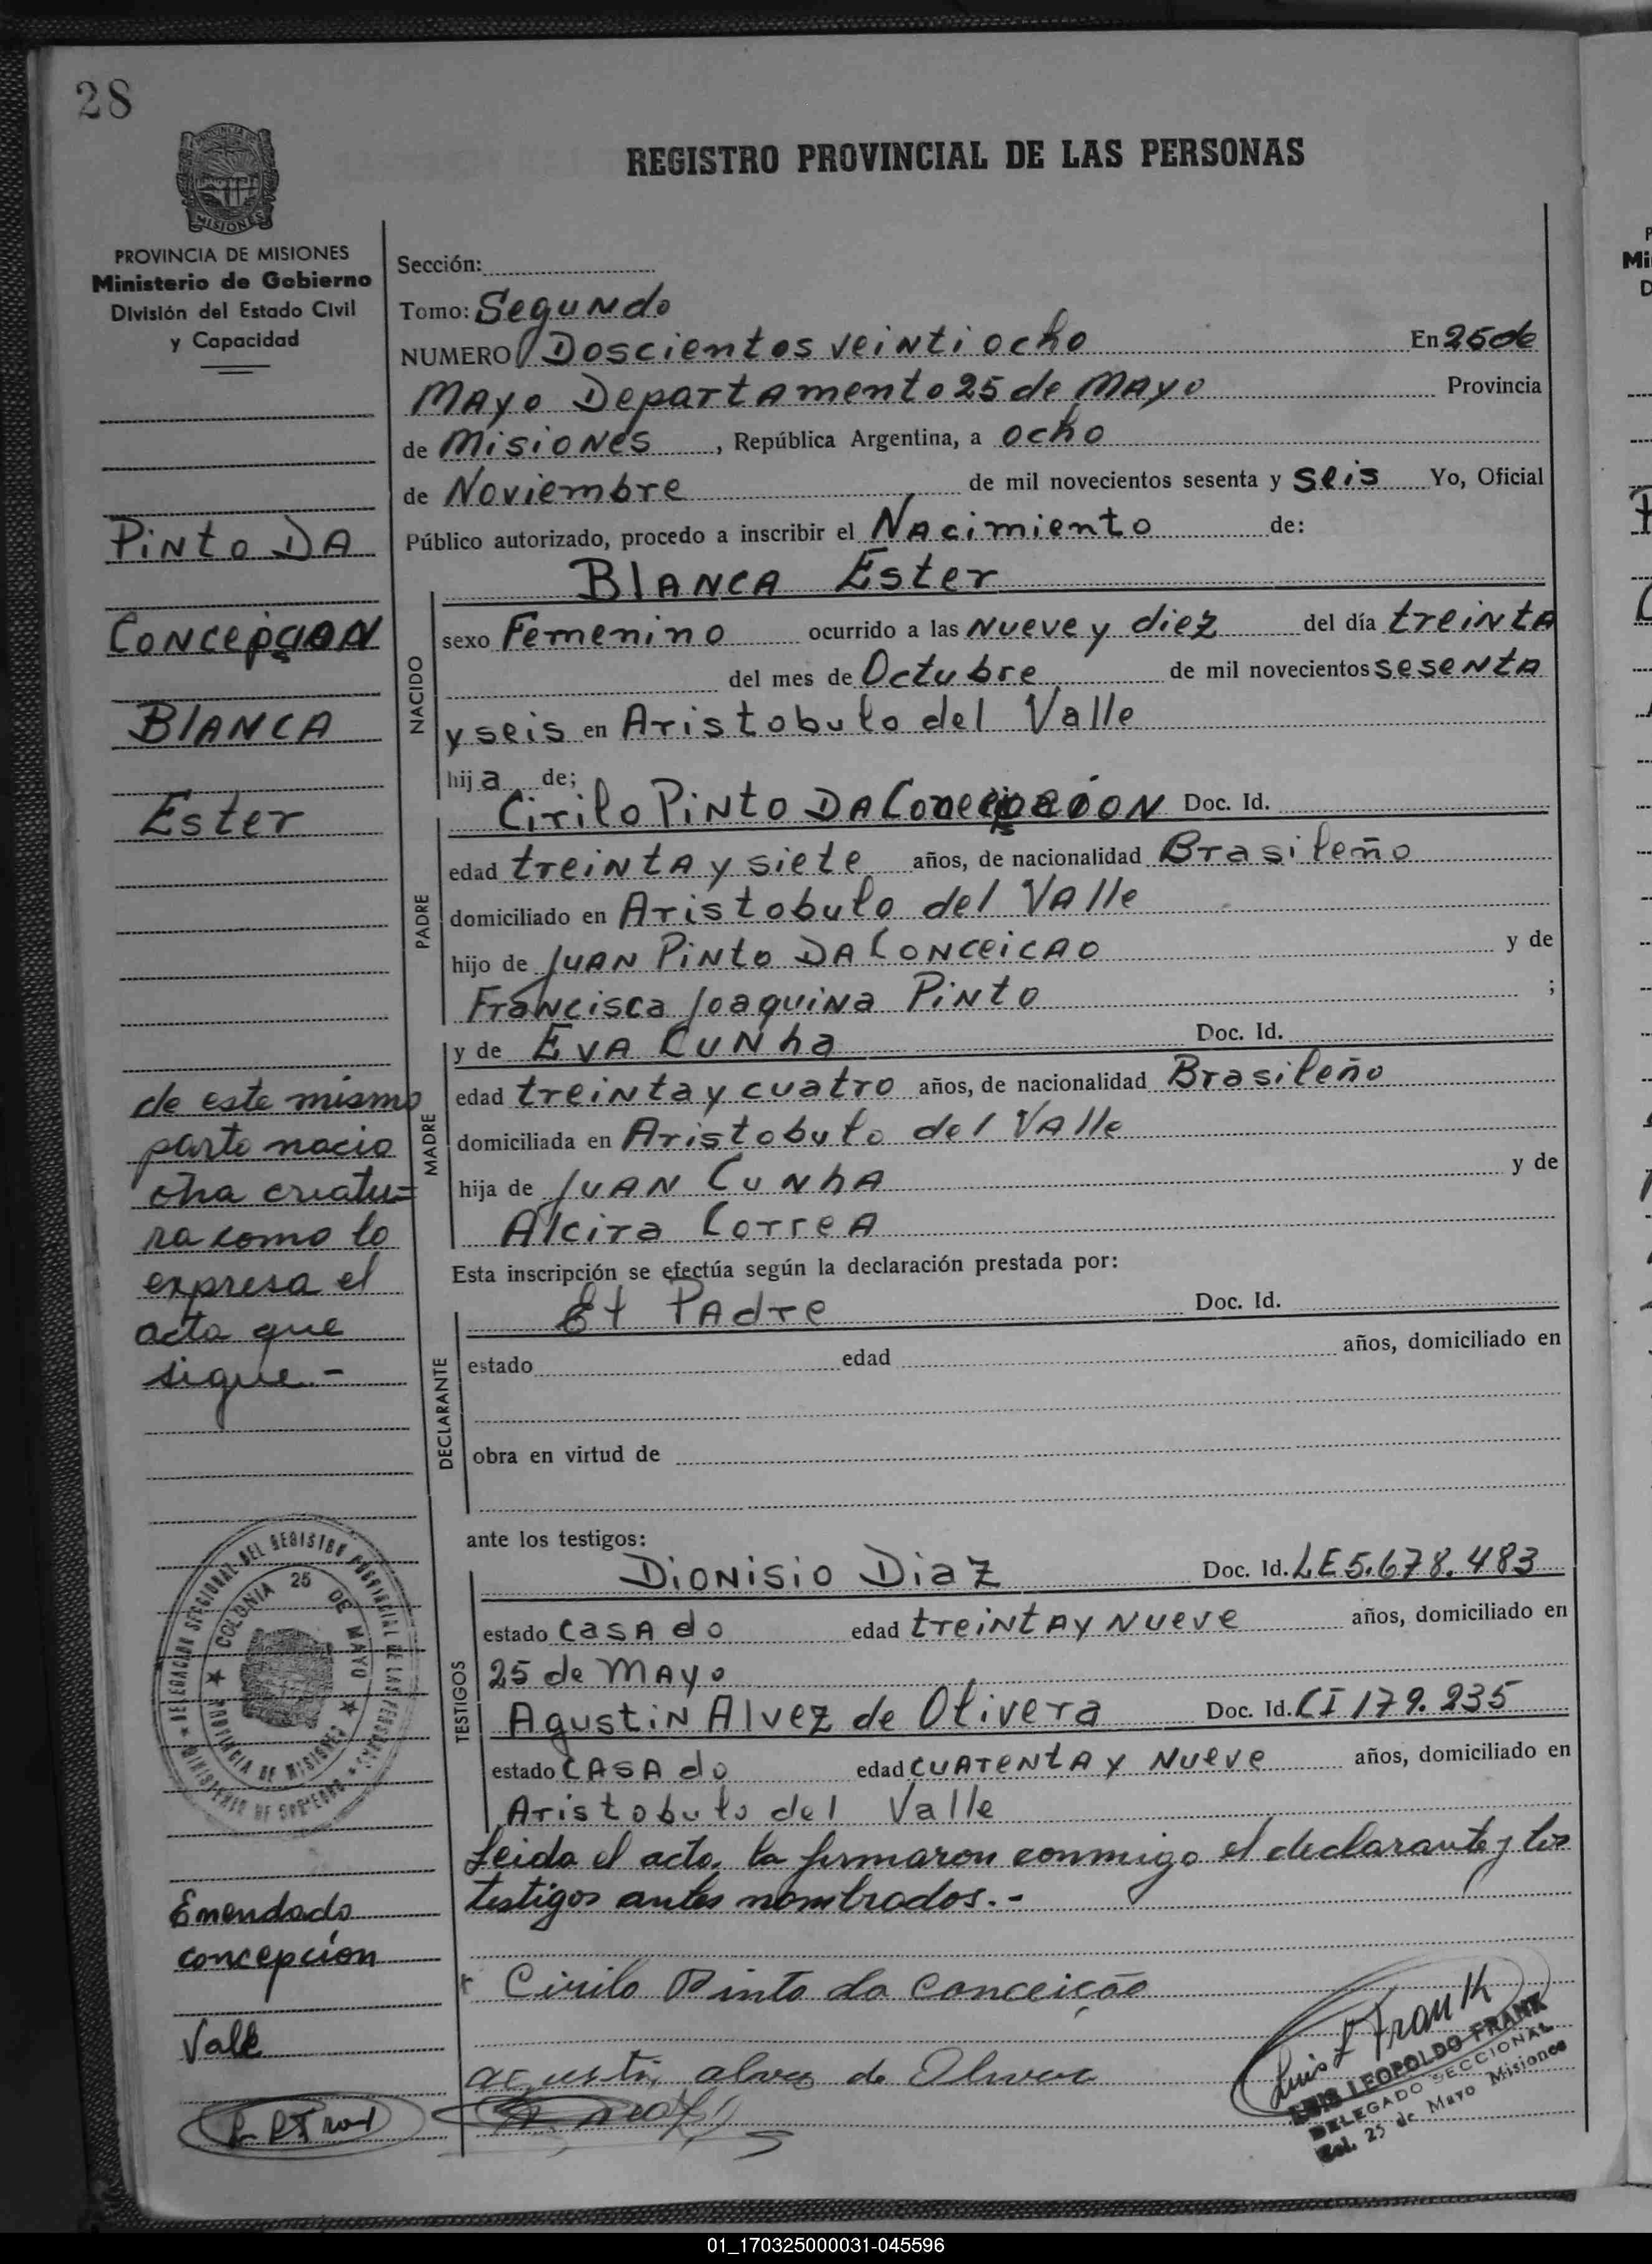 28
MISIONES
REGISTRO PROVINCIAL DE LAS PERSONAS
PROVINCIA DE MISIONES
Ministerio de Gobierno
División del Estado Civil
y Capacidad
Pinto DA
Concepcion
BLANCA
Ester
de este mismo
parto nacio
otra criatu=
ra como lo
expresa el
acta que
sigue.-
Sección:
Tomo: Segundo
NUMERO Doscientos veinti ocho En 25 de
Mayo Departamento 25 de Mayo Provincia
de Misiones, República Argentina, a ocho
de Noviembre de mil novecientos sesenta y seis Yo, Oficial
Público autorizado, procedo a inscribir el Nacimiento de:
BLANCA Ester
NACIDO
sexo Femenino ocurrido a las nueve y diez del día treinta
del mes de Octubre de mil novecientos sesenta
y seis en Aristobulo del Valle
hija de;
PADRE
Cirilo Pinto DA Concepcion Doc. Id.
edad treinta y siete años, de nacionalidad Brasileño
domiciliado en Aristobulo del Valle
hijo de Juan Pinto DA Conceicao y de
Francisca Joaquina Pinto ;
MADRE
y de Eva Cunha Doc. Id.
edad treinta y cuatro años, de nacionalidad Brasileño
domiciliada en Aristobulo del Valle
hija de Juan Cunha y de
Alcira Correa
Esta inscripción se efectúa según la declaración prestada por:
DECLARANTE
El Padre Doc. Id.
estado edad años, domiciliado en
obra en virtud de
ante los testigos:
TESTIGOS
Dionisio Diaz Doc. Id. LE 5.678.483
estado casado edad treinta y nueve años, domiciliado en
25 de Mayo
Agustin Alvez de Olivera Doc. Id. CI 179.235
estado casado edad cuarenta y nueve años, domiciliado en
Aristobulo del Valle
Leida el acta, la firmaron conmigo el declarante y los
testigos antes nombrados.-
DELEGACION SECCIONAL DEL REGISTRO PROVINCIAL DE LAS PERSONAS
MINISTERIO DE GOBIERNO
COLONIA 25 DE MAYO
PROVINCIA DE MISIONES
Emendado
concepcion
Vale
Cirilo Pinto da Conceição
agustin alvez de Olivera
Luis L Frank
LUIS LEOPOLDO FRANK
DELEGADO SECCIONAL
Col. 25 de Mayo Misiones
P
Mi
D
01_170325000031-045596